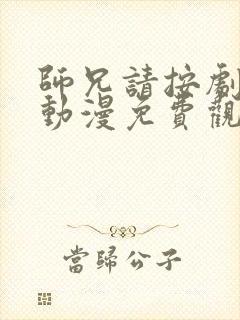 師兄請按劇
動漫免費觀
當歸公子